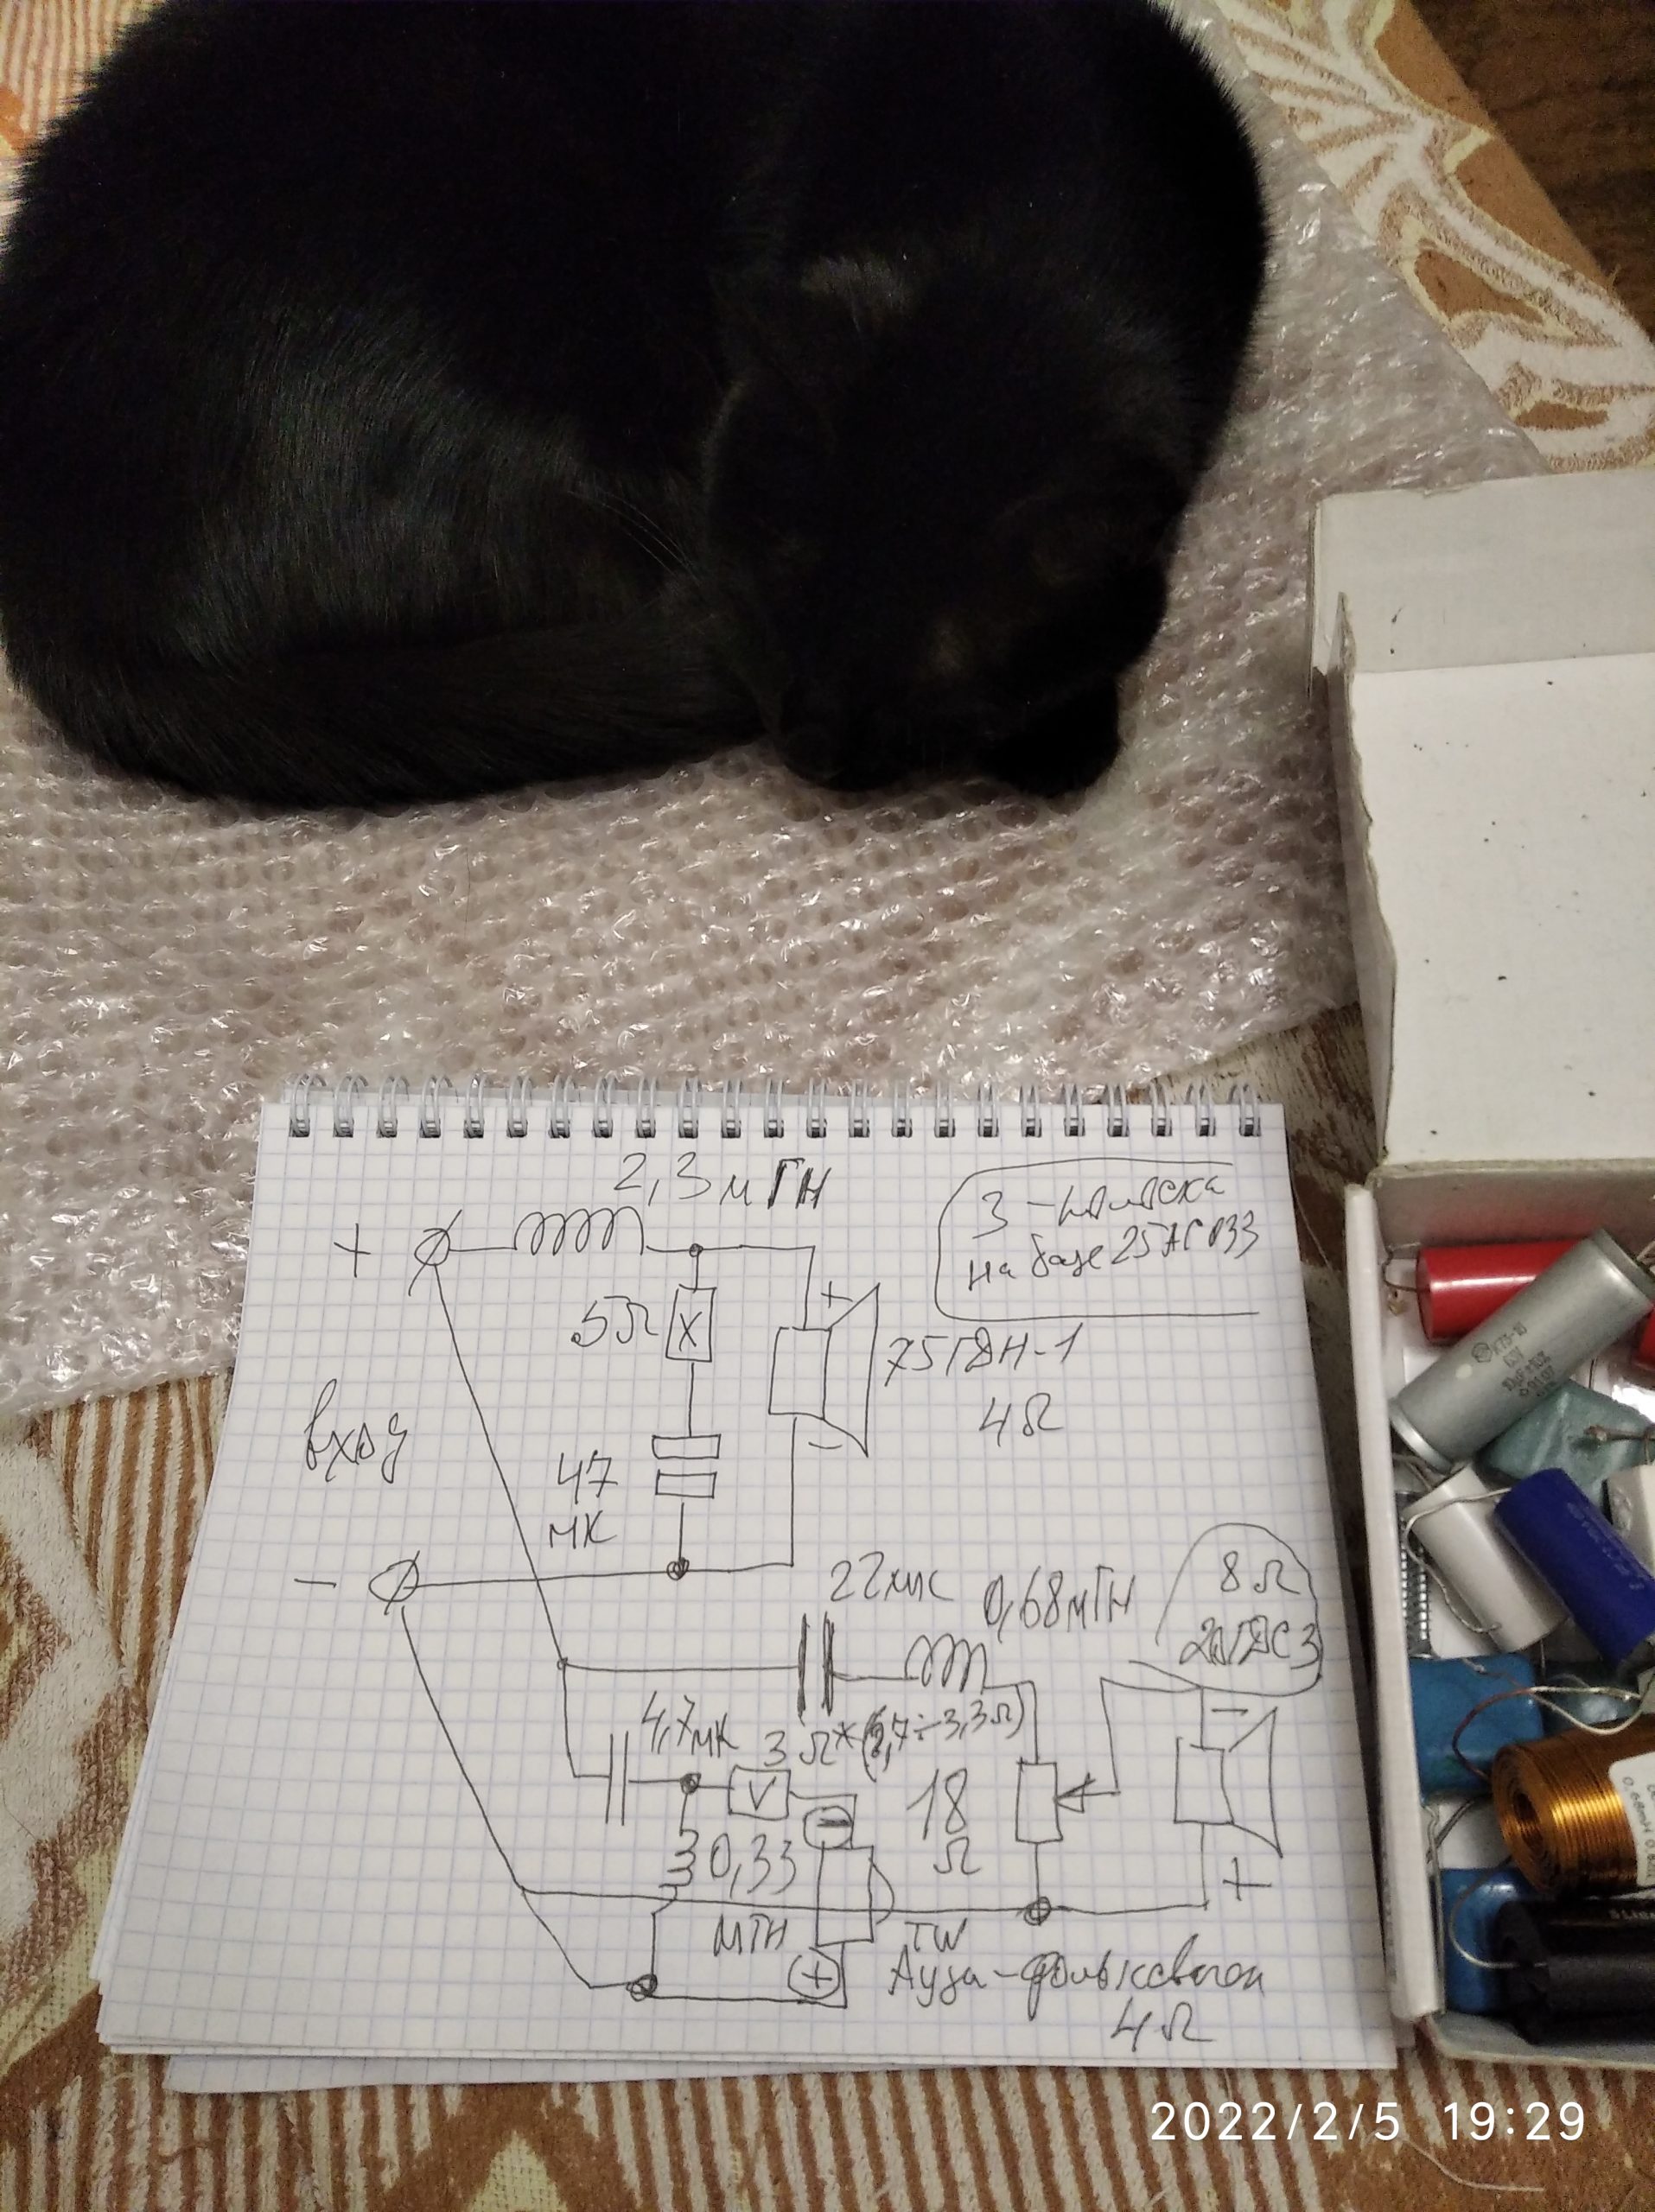 2,3 мГН
3-полоска
на базе 25АС033
+
5Ω
X
+
75ГДН-1
4Ω
вход
−
47
мк
−
22мк
0,68мГН
8Ω
20ГДС3
4,7мк
3 Ω*(2,7÷3,3Ω)
−
V
−
18
Ω
0,33
мГН
+
+
TW
Ауди-фольксваген
4Ω
К73-16
63V
10µF±10%
2022/2/5 19:29